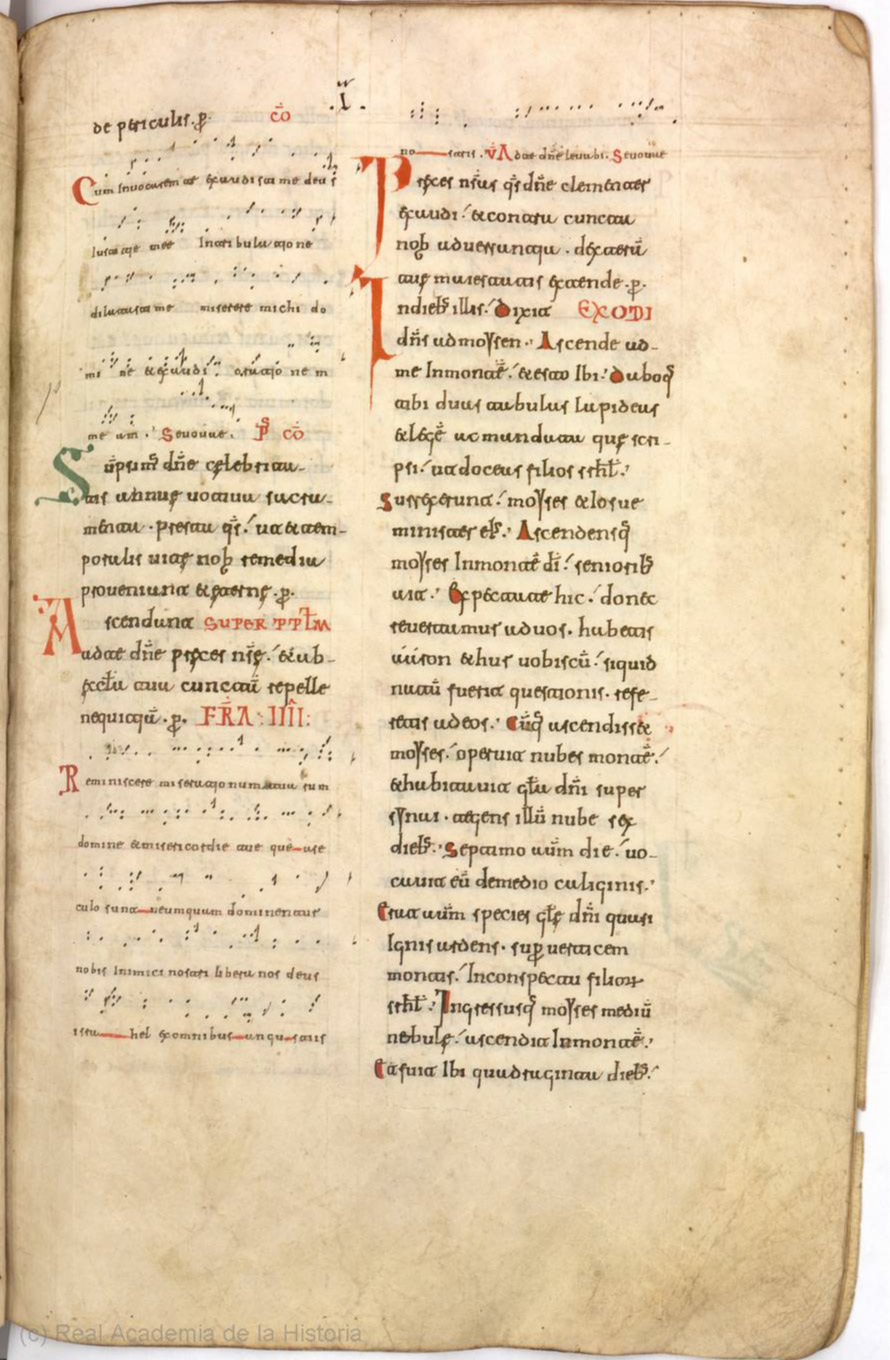 .I.
de periculis. p̄ cō
Cum Invocarem te exaudisti me deus
Iustitie mee In tribulatione
dilatasti me miserere michi do
mi ne & exaudi orationem
me am. Seuouae. P̄S cō
Sūpsim̄ dn̄e celebrita
tis annue votiva sacra
menta. presta q̄s. ut & tem
poralis vite nob remedia
proveniant & eterne. p̄.
Ascendunt SUPER PPLM
udet dn̄e preces nr̄e. & ab
ecclā tua cunctā repelle
nequitiā. p̄. FRA IIII:
Reminiscere miserationum tuarum
domine & misericordie tue que a se
culo sunt neumquam dominentur
nobis Inimici nostri libera nos deus
isra hel ex omnibus angustiis
nostris. V̄ Ad te dn̄e levabi. Seuouae
Preces nr̄as q̄s dn̄e clementer
exaudi. & contra cuncta
nob adversantia. dexterā
tue maiestatis extende. p̄.
Indieb illis. Dixit EXODI
dn̄s ad moysen. Ascende ad
me In monte. & esto Ibi. Daboq
tibi duas tabulas lapideas
& legē ac mandata que scri
psi. ut doceas filios isrhl.
Surrexerunt. moyses & Iosue
minister ei. Ascendensq
moyses In montē dī. seniorib
ait. Expectate hic. donec
revertamur ad vos. habetis
aaron & hur vobiscū. siquid
natū fuerit questionis. refe
retis ad eos. Cūq ascendiss&
moyses. operuit nubes montē.
& habitavit glā dn̄i super
synai. tegens illū nube sex
dieb. Septimo aūm die. vo
cavit eū de medio caliginis.
Erat aūm species glē dn̄i quasi
Ignis ardens. sup verticem
montis. In conspectu filior
isrhl. Ingressusq moyses mediū
nebule. ascendit In montē.
Et fuit Ibi quadraginta dieb.
(c) Real Academia de la Historia